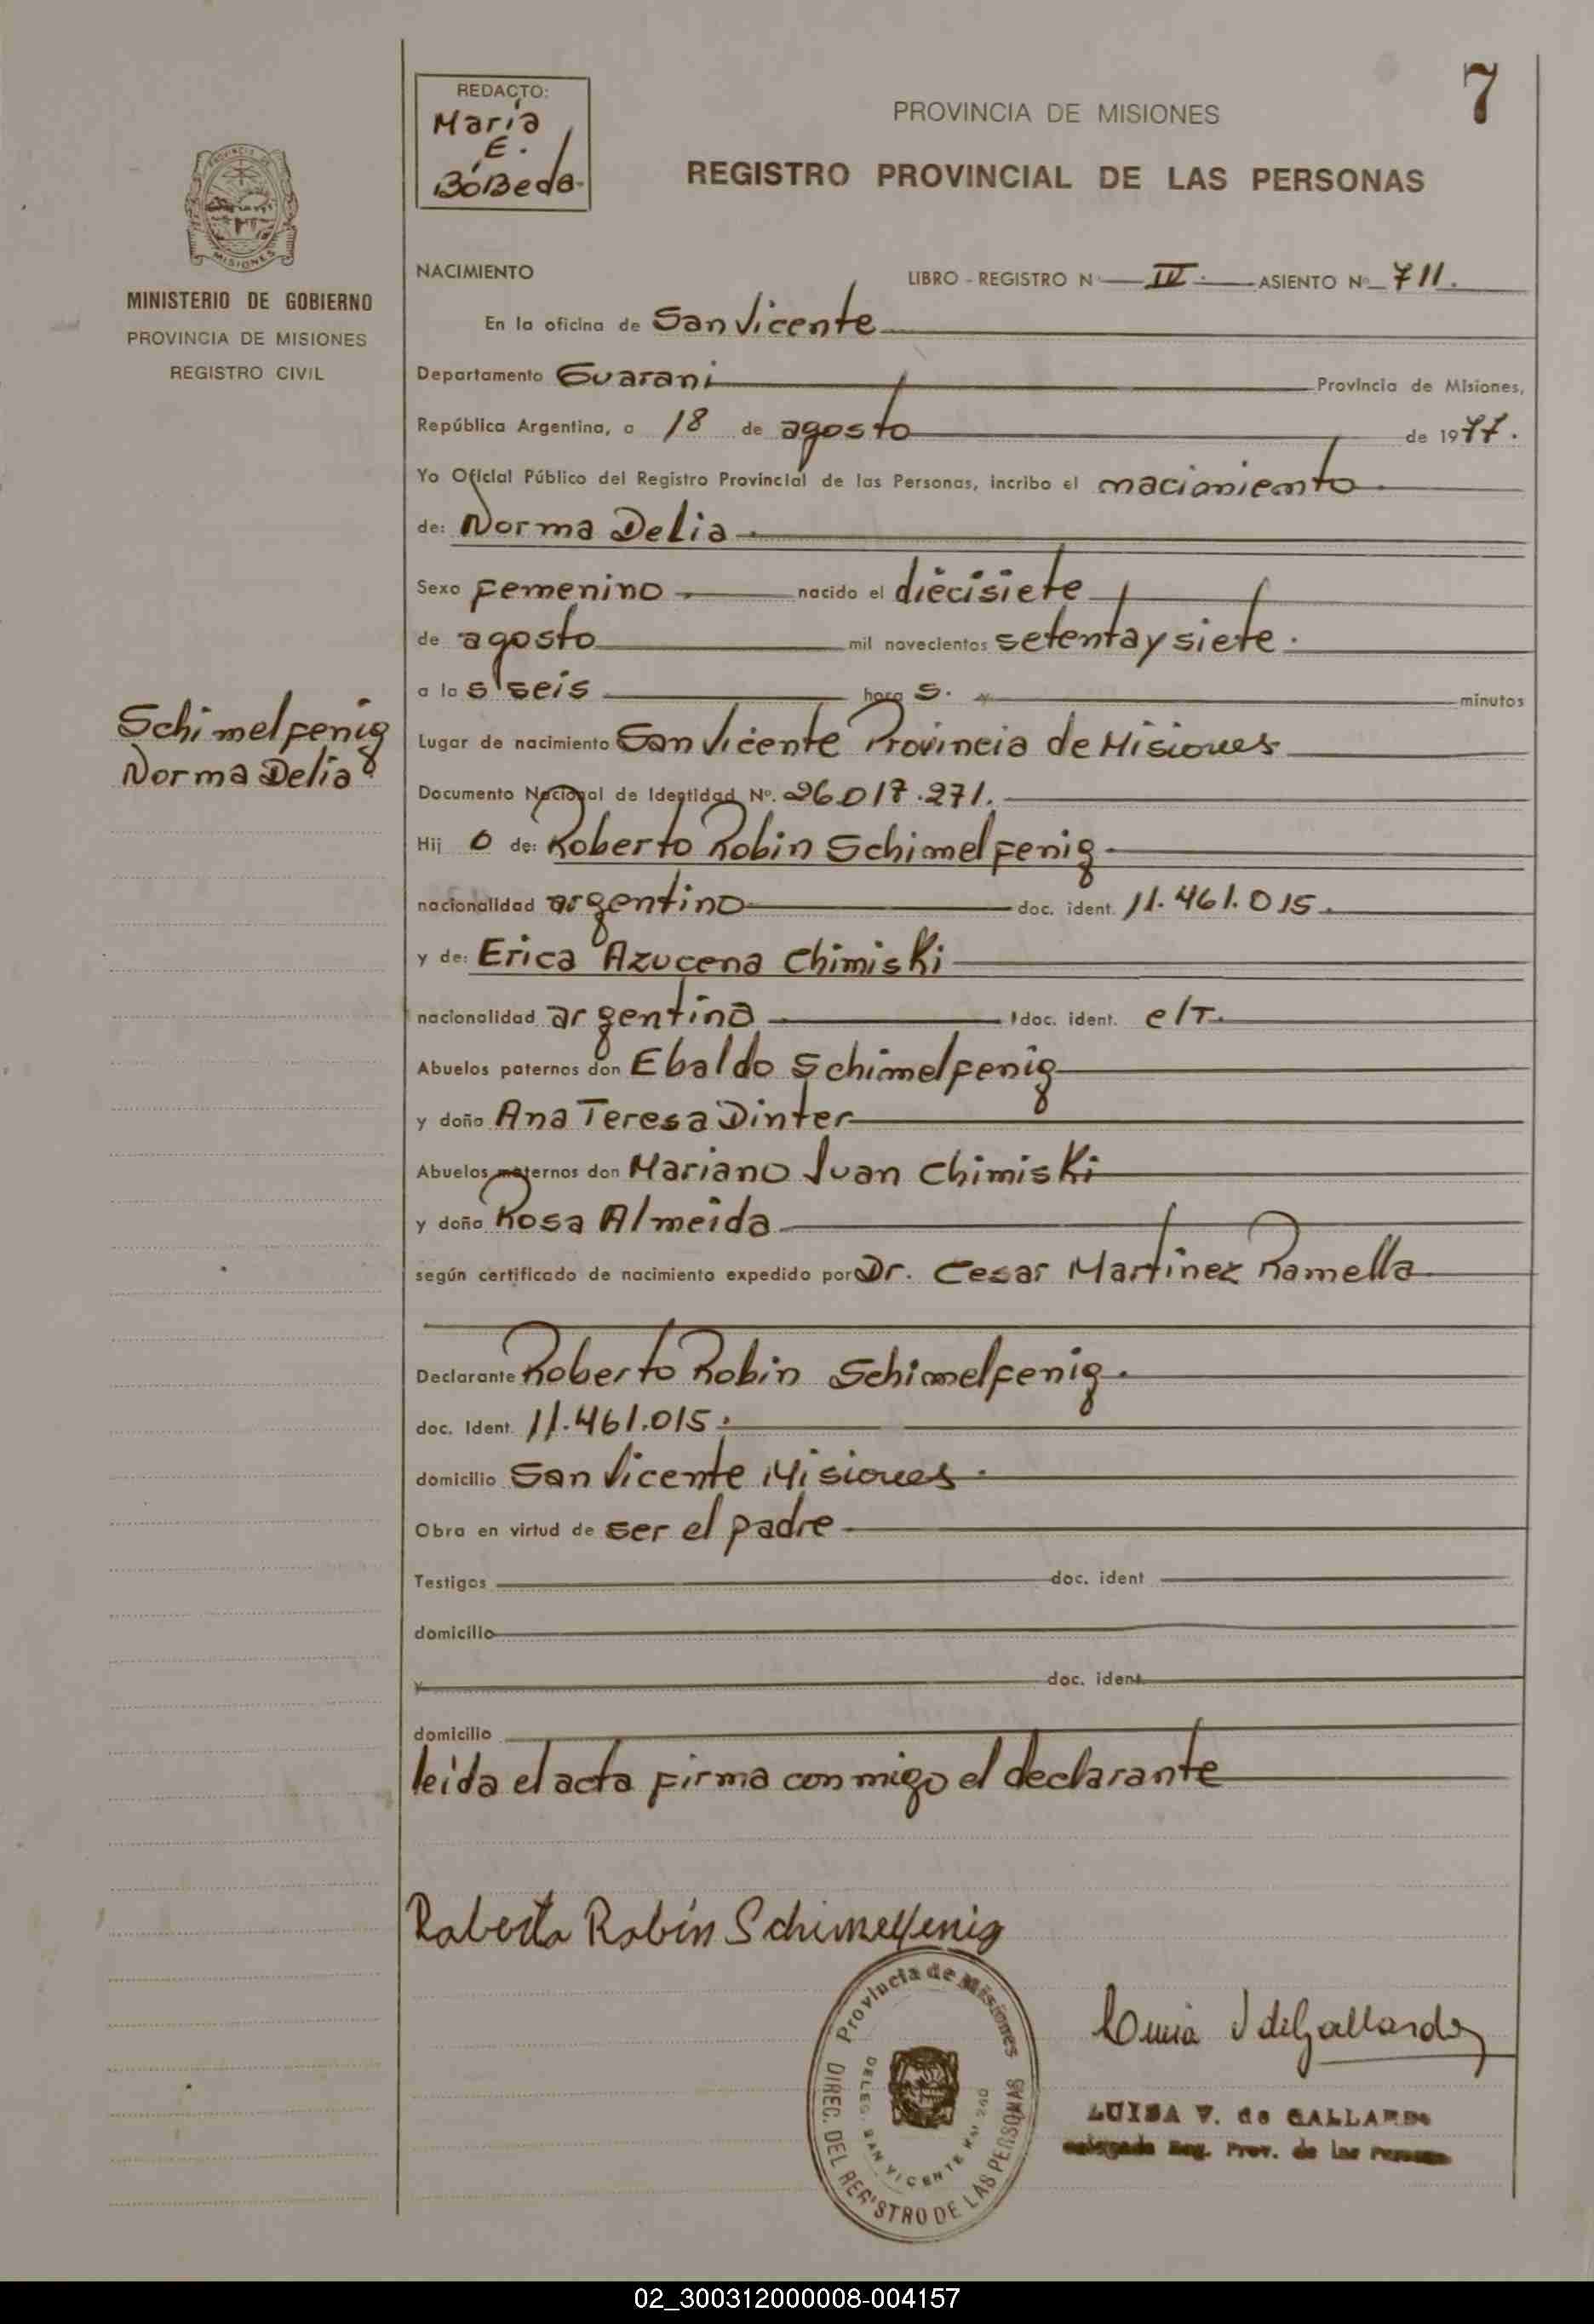 REDACTO:
María
E.
BóBeda.
7
PROVINCIA DE MISIONES
REGISTRO PROVINCIAL DE LAS PERSONAS
PROVINCIA DE
MISIONES
MINISTERIO DE GOBIERNO
PROVINCIA DE MISIONES
REGISTRO CIVIL
NACIMIENTO
LIBRO - REGISTRO Nº IV. ASIENTO Nº 711.
En la oficina de San Vicente
Departamento Guarani Provincia de Misiones,
República Argentina, a 18 de agosto de 1977.
Yo Oficial Público del Registro Provincial de las Personas, incribo el nacimiento
de: Norma Delia
Sexo femenino nacido el diecisiete
de agosto mil novecientos setenta y siete.
a las seis horas. y minutos
Schimelfenig
Norma Delia
Lugar de nacimiento San Vicente Provincia de Misiones
Documento Nacional de Identidad Nº. 26.017.271.
Hij o de: Roberto Robin Schimelfenig
nacionalidad argentino doc. ident. 11.461.015.
y de: Erica Azucena Chimiski
nacionalidad argentina doc. ident. e/T.
Abuelos paternos don Ebaldo Schimelfenig
y doña Ana Teresa Dinter
Abuelos maternos don Mariano Juan Chimiski
y doña Rosa Almeida
según certificado de nacimiento expedido por Dr. Cesar Martinez Ramella
Declarante Roberto Robin Schimelfenig.
doc. Ident. 11.461.015.
domicilio San Vicente Misiones.
Obra en virtud de ser el padre
Testigos doc. ident
domicilio
y doc. ident.
domicilio
leida el acta firma con migo el declarante
Roberto Robin Schimelfenig
Provincia de Misiones
DIREC. DEL REGISTRO DE LAS PERSONAS
DELEG. SAN VICENTE
V de Gallardo
LUISA V. de GALLARDO
Reg. Prov. de las Personas
02_300312000008-004157